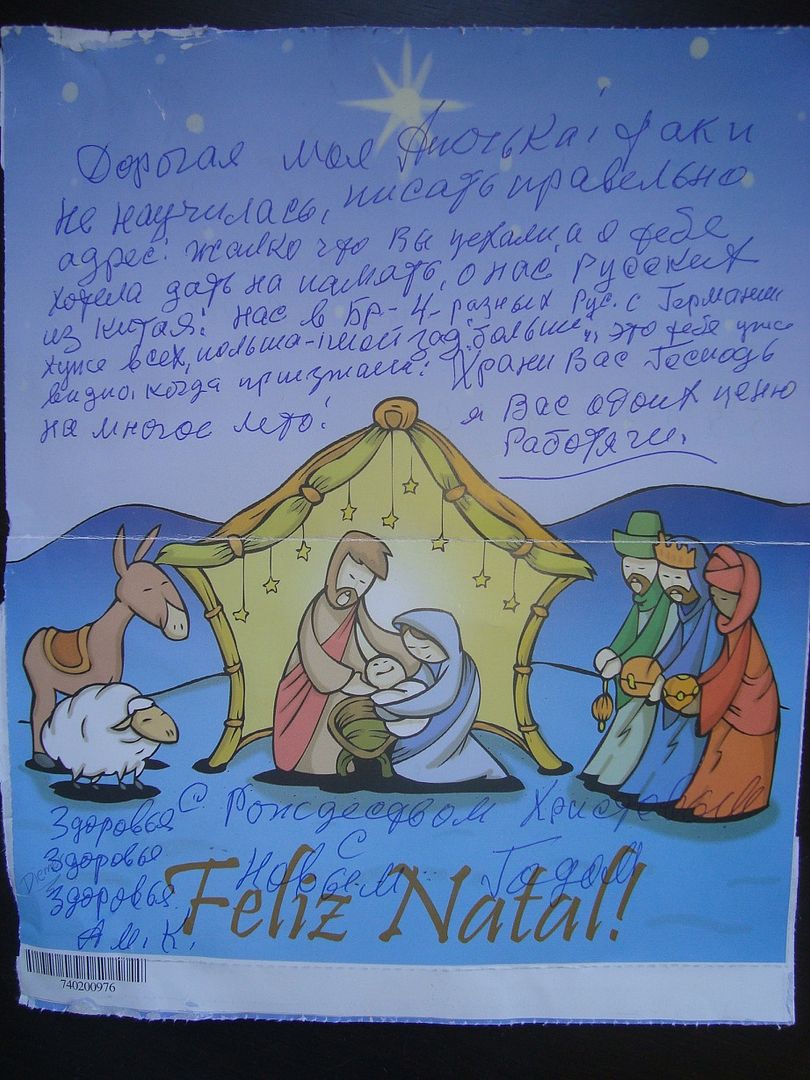 Дорогая моя Анютка! Так и
не научилась, писать правельно
адрес! Жалко что Вы уехали, а я тебе
хотела дать на память, о нас, Русских
из Китая! Нас в БР-4-разных Рус. с Германии
хуже всех, польша-
видно, когда приезжала! Храни Вас Господь
на многое лето! я Вас обоих ценю
Работяги.
Здоровья С Рождеством Христовым
Здоровье С
Здоровья Новым Годом
А.М.К.
Feliz Natal!
740200976